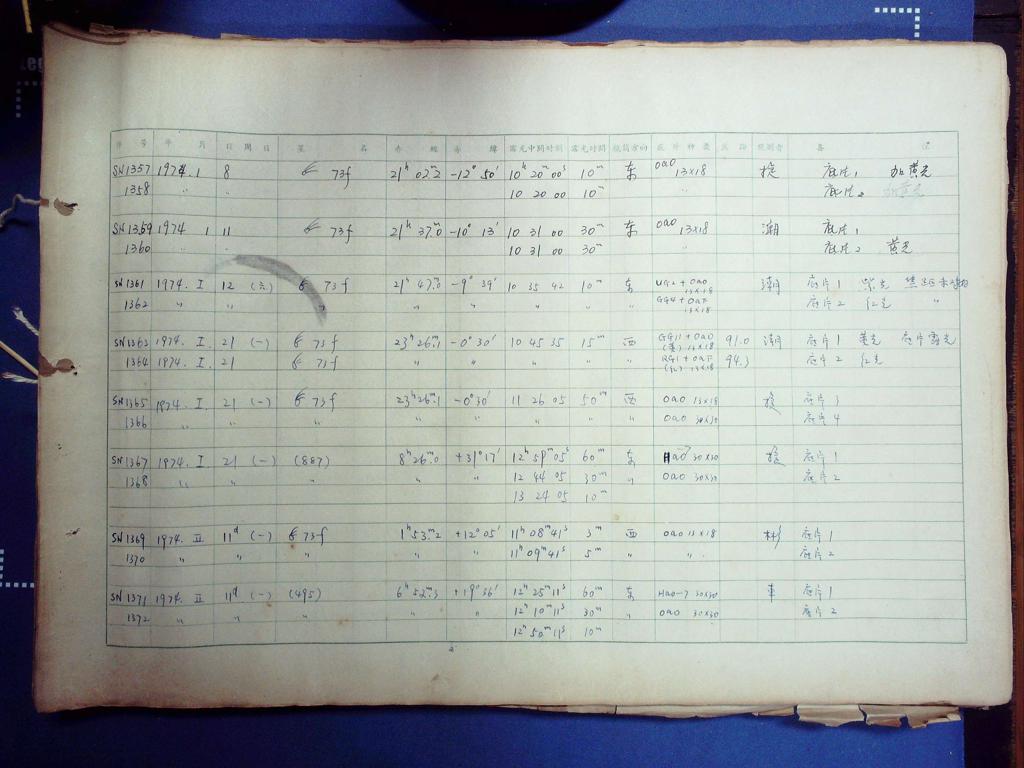 序号 年 月 日 周日 星 名 赤 经 赤 纬 露光中间时刻 露光时间 镜筒方向 底片种类 观测者 备 注
SN1357 1974.1 8 73f 21ʰ 02ᵐ.2 -12° 50′ 10ʰ 20ᵐ 00ˢ 10ᵐ 东 OaO 13×18 底片1 加黄光
1358 " " 10 20 00 10ᵐ " 底片2 加黄光
SN1359 1974 1 11 73f 21ʰ 37ᵐ.0 -10° 13′ 10 31 00 30ᵐ 东 OaO 13×18 潮 底片1
1360 " " 10 31 00 30ᵐ " 底片2 黄光
SN1361 1974. I 12 (六) 73f 21ʰ 47ᵐ.0 -9° 39′ 10 35 42 10ᵐ 东 UG2 + OaO 13×18 潮 底片1 紫光
1362 " " " " " " " " GG4 + OaF 13×18 底片2 红光 "
SN1363 1974. I. 21 (一) 73f 23ʰ 26ᵐ.1 -0° 30′ 10 45 35 15ᵐ 西 GG11 + OaO (黄) 13×18 91.0 潮 底片1 黄光 底片露光
1364 1974. I. 21 73f " " " " " RG1 + OaF (红) 13×18 94.3 底片2 红光
SN1365 1974. I. 21 (一) 73f 23ʰ 26ᵐ.1 -0° 30′ 11 26 05 50ᵐ 西 OaO 13×18 底片3
1366 " " " " " " " " OaO 30×30 底片4
SN1367 1974. I. 21 (一) (887) 8ʰ 26ᵐ.0 +31° 17′ 12ʰ 59ᵐ 05ˢ 60ᵐ 东 HaO 30×30 底片1
1368 " " " " " 12 44 05 30ᵐ " OaO 30×30 底片2
13 24 05 10ᵐ
SN1369 1974. II 11ᵈ (一) 73f 1ʰ 53ᵐ.2 +12° 05′ 11ʰ 08ᵐ 41ˢ 3ᵐ 西 OaO 13×18 彬 底片1
1370 " " " " " 11ʰ 09ᵐ 41ˢ 5ᵐ " " " 底片2
SN1371 1974. II 11ᵈ (一) (495) 6ʰ 52ᵐ.3 +19° 36′ 12ʰ 25ᵐ 11ˢ 60ᵐ 东 HaO-7 30×30 底片1
1372 " " " " " 12ʰ 10ᵐ 11ˢ 30ᵐ " OaO 30×30 底片2
12ʰ 50ᵐ 11ˢ 10ᵐ